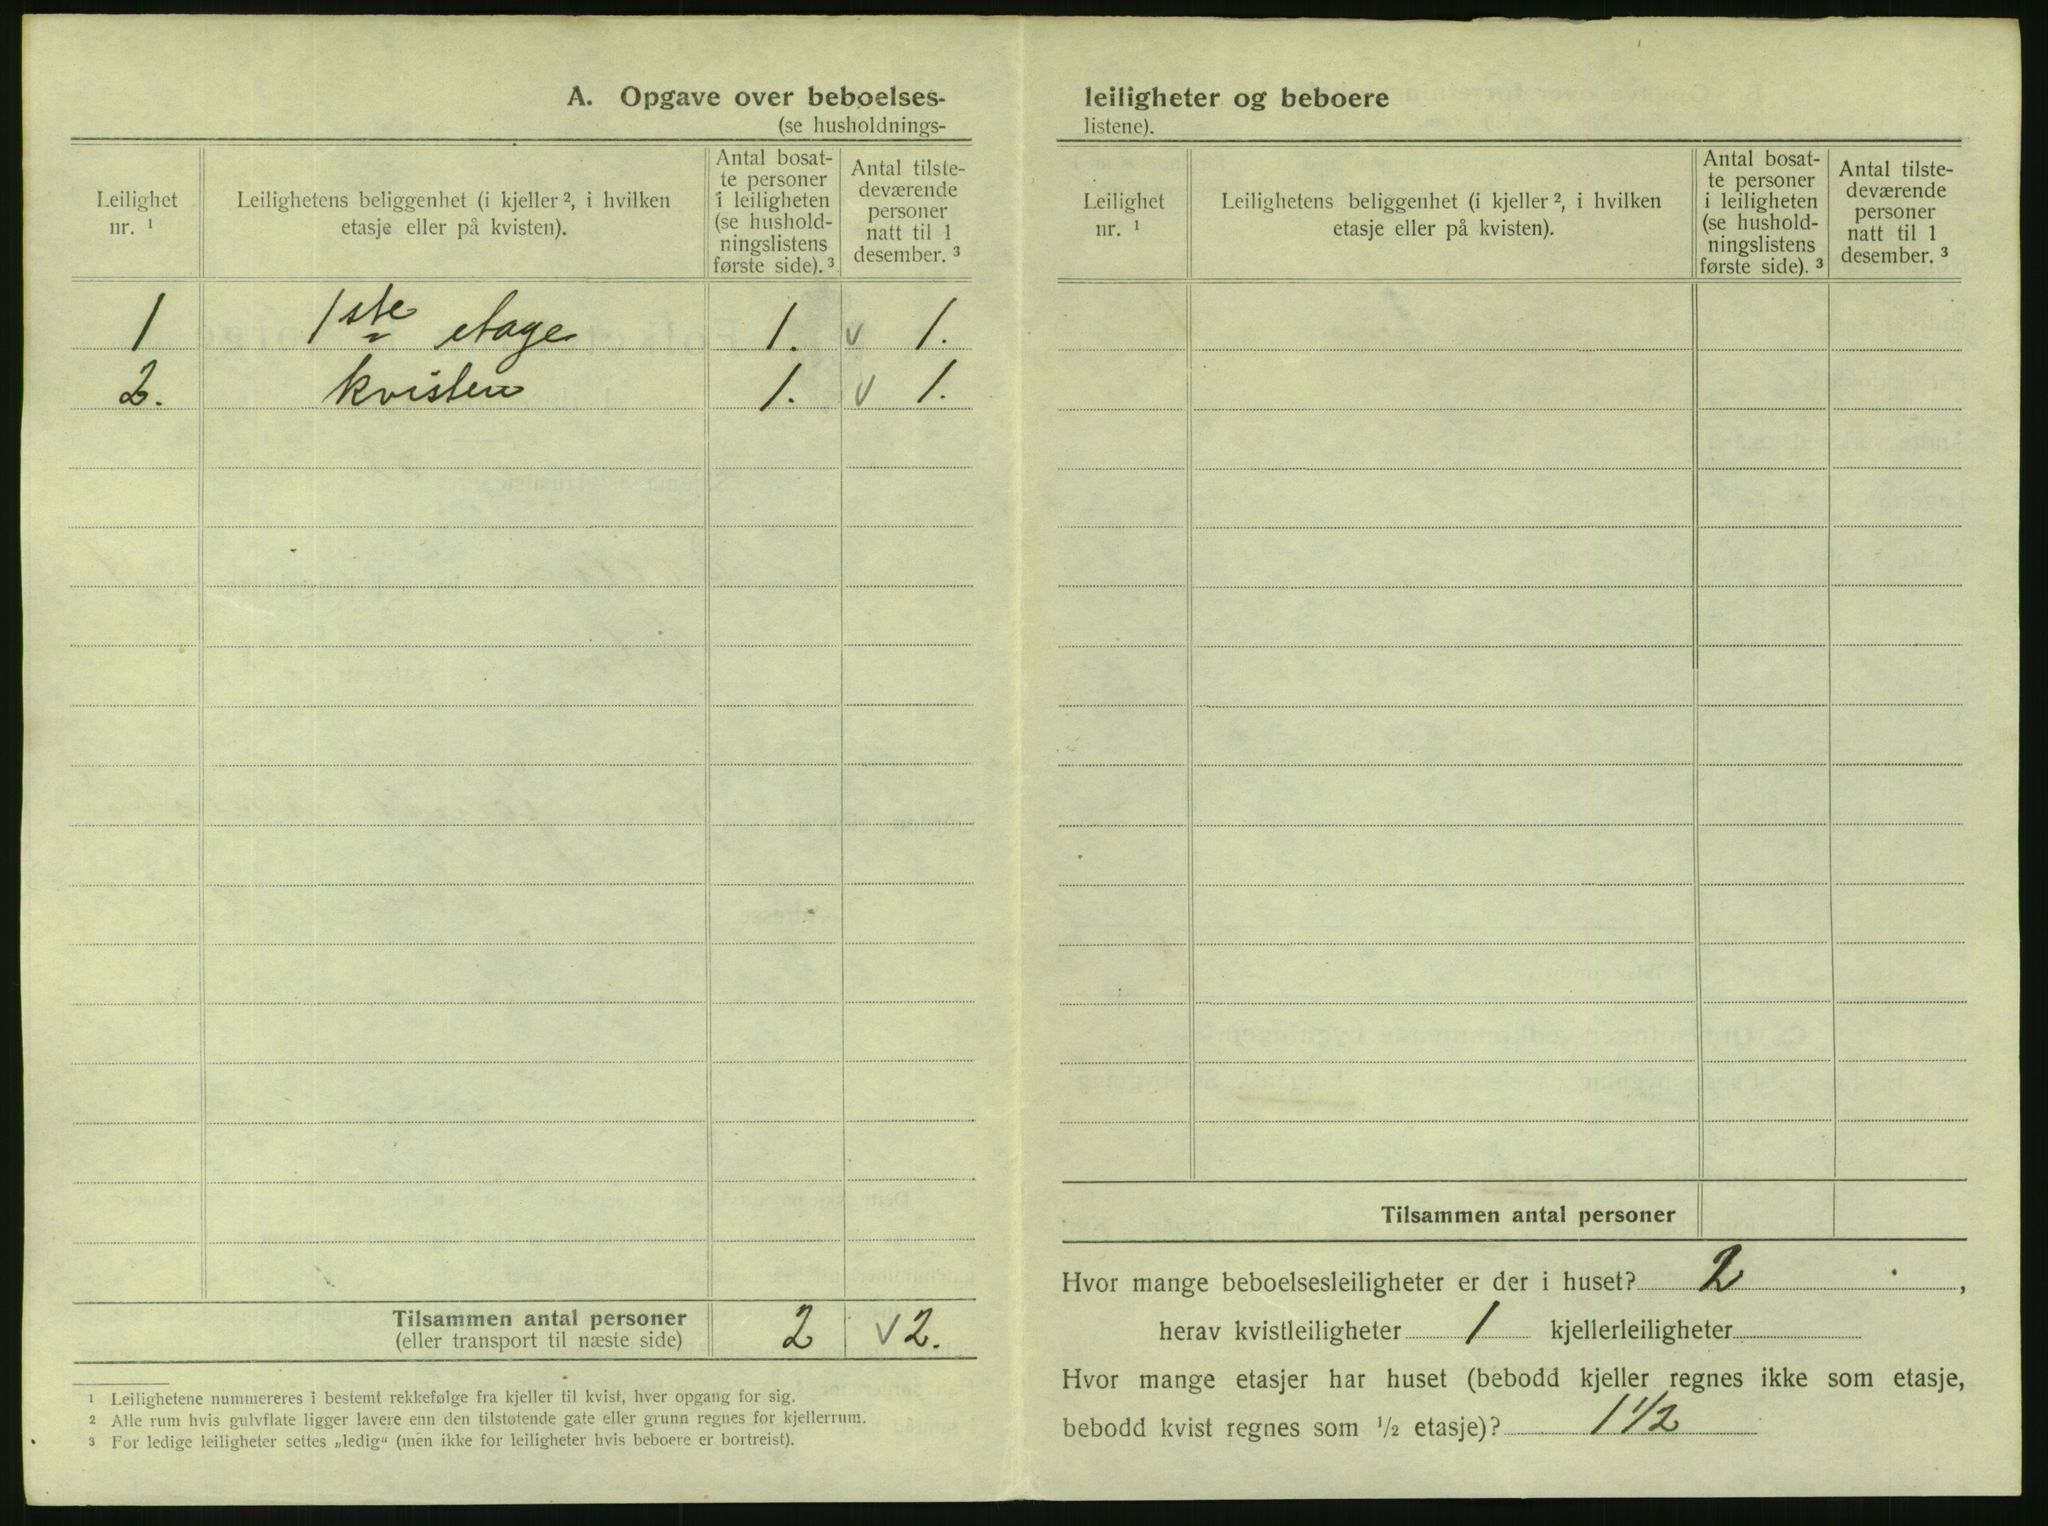 A. Opgave over beboelses-
(se husholdnings-
Leilighet nr. 1
Leilighetens beliggenhet (i kjeller 2, i hvilken etasje eller på kvisten).
Antal bosat-
te personer
i leiligheten
(se hushold-
ningslistens
første side). 3
Antal tilste-
deværende
personer
natt til 1
desember. 3
1 1ste etage 1. v 1.
2. kvisten 1. v 1.
Tilsammen antal personer 2 v 2.
(eller transport til næste side)
1 Leilighetene nummereres i bestemt rekkefølge fra kjeller til kvist, hver opgang for sig.
2 Alle rum hvis gulvflate ligger lavere enn den tilstøtende gate eller grunn regnes for kjellerrum.
3 For ledige leiligheter settes „ledig“ (men ikke for leiligheter hvis beboere er bortreist).
leiligheter og beboere
listene).
Leilighet nr. 1
Leilighetens beliggenhet (i kjeller 2, i hvilken etasje eller på kvisten).
Antal bosat-
te personer
i leiligheten
(se hushold-
ningslistens
første side). 3
Antal tilste-
deværende
personer
natt til 1
desember. 3
Tilsammen antal personer
Hvor mange beboelsesleiligheter er der i huset? 2 ,
herav kvistleiligheter 1 kjellerleiligheter
Hvor mange etasjer har huset (bebodd kjeller regnes ikke som etasje,
bebodd kvist regnes som 1/2 etasje)? 1 1/2